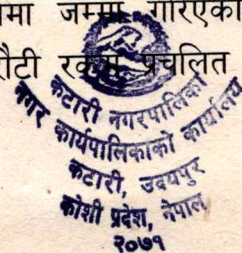 जम्मा गरिएको
प्रचलित
कटारी नगरपालिका
नगर कार्यपालिकाको कार्यालय
कटारी, उदयपुर
कोशी प्रदेश, नेपाल
२०७१